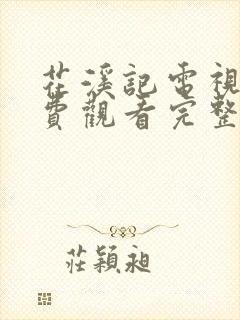 花溪記電視
費觀看完整
莊穎昶